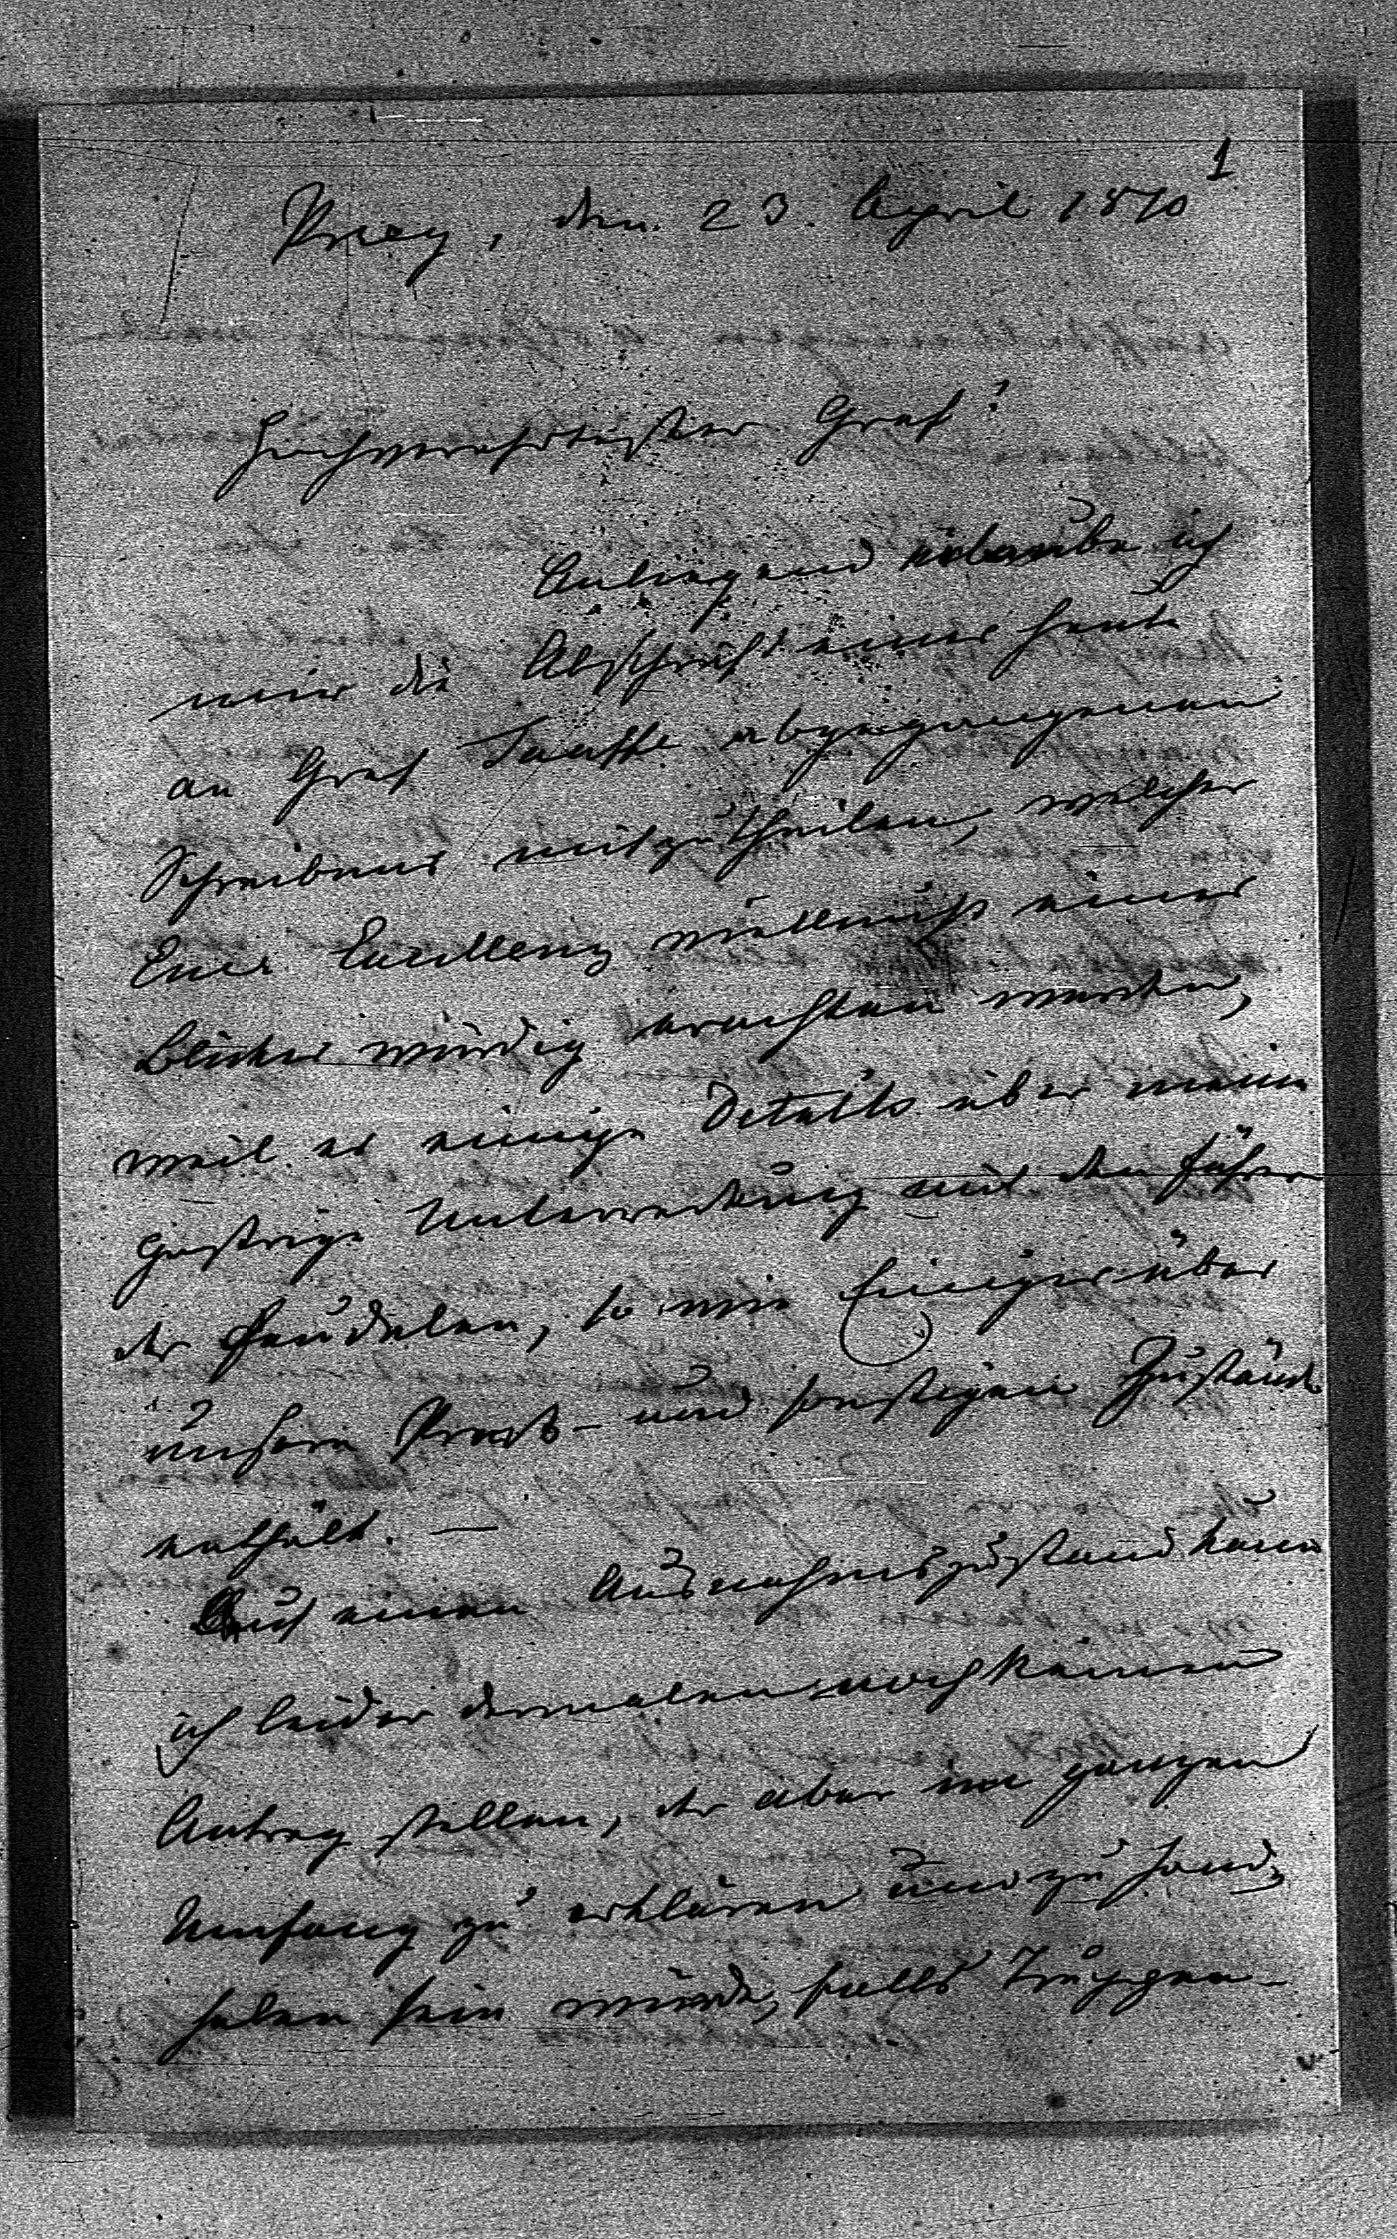 1
Prag, den 23. April 1870
Hochverehrtester Graf!
Anliegend erlaube ich
mir die Abschrift eines heute
an Graf Taaffe abgegangenen
Schreibens mitzutheilen, welches
Euer Excellenz vielleicht eines
Blickes würdig erachten werden,
weil es einige Details über meine
gestrige Unterredung mit den Führern
der Feudalen, so wie Einiges über
unsere Preß- und sonstigen Zustände
enthält. —
Auf einen Ausnahmszustand kann
ich leider dermalen noch keinen
Antrag stellen, der aber im ganzen
Umfang zu erklären und zu hand-
haben sein würde, falls Truppen-